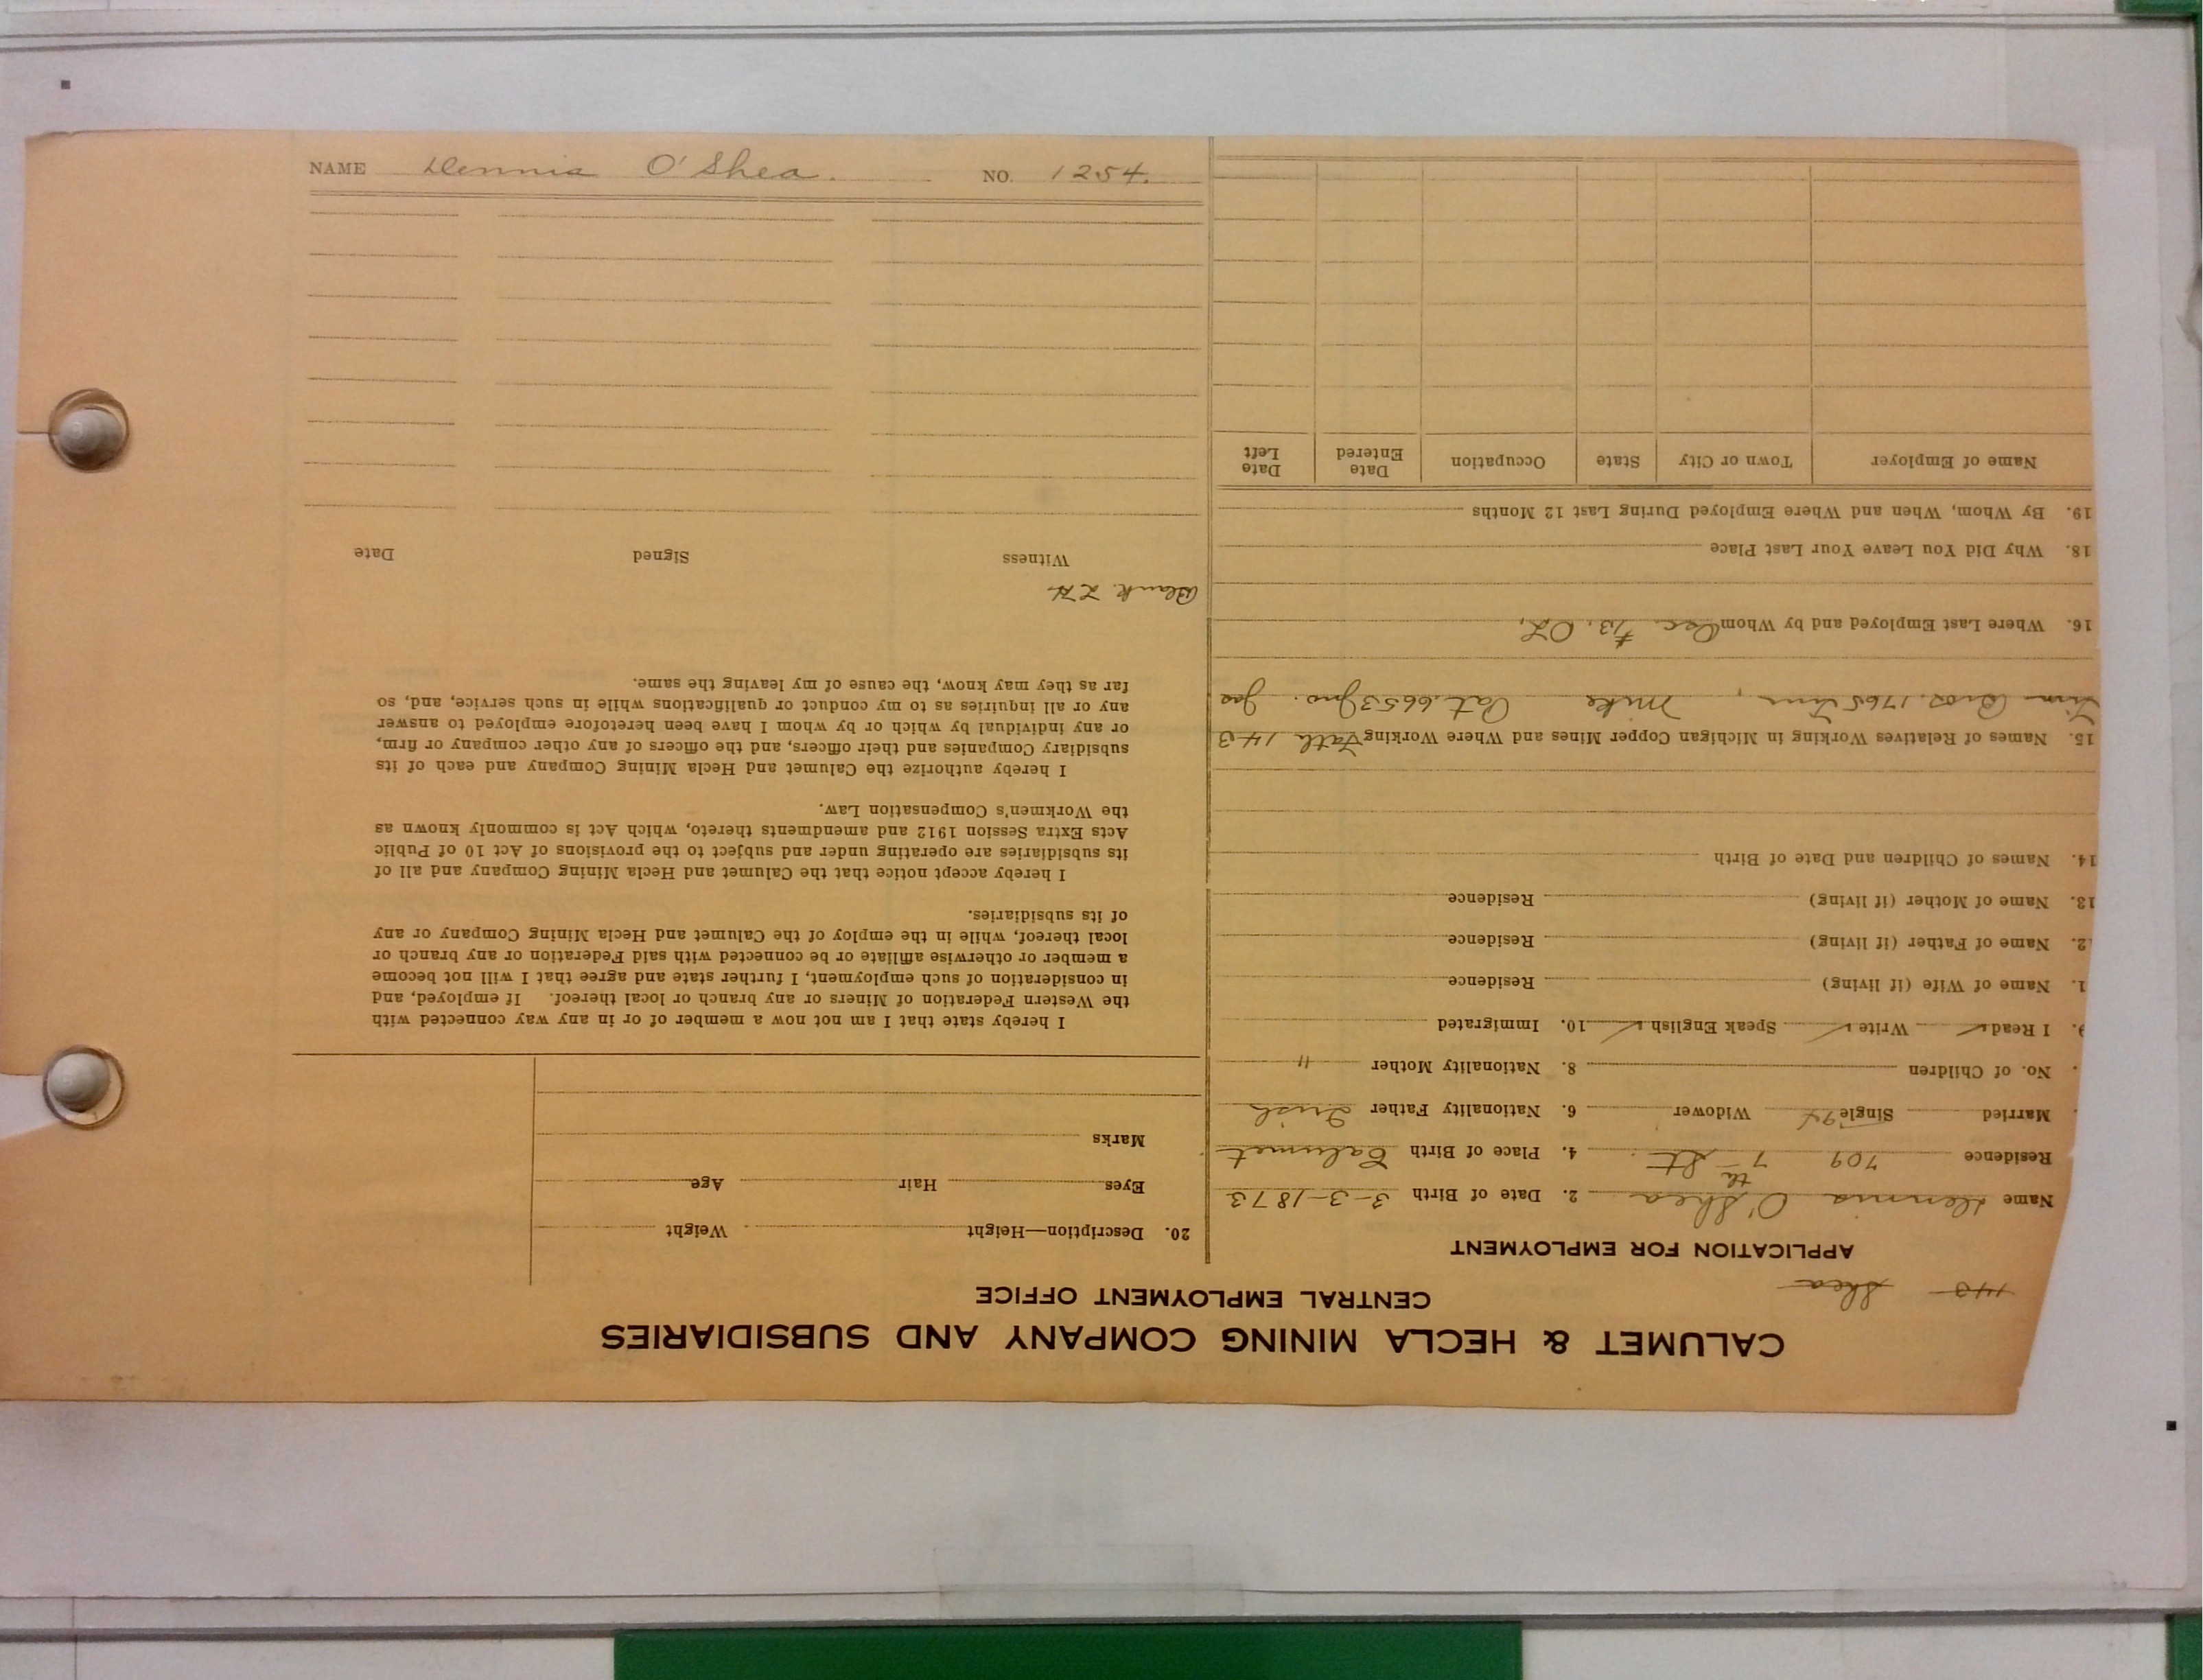 NAME Dennis O'Shea. NO. 1254.
CALUMET & HECLA MINING COMPANY AND SUBSIDIARIES
CENTRAL EMPLOYMENT OFFICE
143 Shea
APPLICATION FOR EMPLOYMENT
Name Dennis O'Shea 2. Date of Birth 3-3-1873
Residence 709 7th St. 4. Place of Birth Calumet
Married Single Widower 6. Nationality Father Irish
No. of Children 8. Nationality Mother "
9. I Read ✓ Write ✓ Speak English ✓ 10. Immigrated
1. Name of Wife (if living) Residence
2. Name of Father (if living) Residence
13. Name of Mother (if living) Residence
14. Names of Children and Date of Birth
15. Names of Relatives Working in Michigan Copper Mines and Where Working Fath 143
Bros. 1765 Mike Pat. 6653 Jno. Jas
16. Where Last Employed and by Whom Osc. #13, OL,
18. Why Did You Leave Your Last Place
19. By Whom, When and Where Employed During Last 12 Months
Name of Employer Town or City State Occupation Date Entered Date Left
20. Description—Height Weight
Eyes Hair Age
Marks
I hereby state that I am not now a member of or in any way connected with
the Western Federation of Miners or any branch or local thereof. If employed, and
in consideration of such employment, I further state and agree that I will not become
a member or otherwise affiliate or be connected with said Federation or any branch or
local thereof, while in the employ of the Calumet and Hecla Mining Company or any
of its subsidiaries.
I hereby accept notice that the Calumet and Hecla Mining Company and all of
its subsidiaries are operating under and subject to the provisions of Act 10 of Public
Acts Extra Session 1912 and amendments thereto, which Act is commonly known as
the Workmen's Compensation Law.
I hereby authorize the Calumet and Hecla Mining Company and each of its
subsidiary Companies and their officers, and the officers of any other company or firm,
or any individual by which or by whom I have been heretofore employed to answer
any or all inquiries as to my conduct or qualifications while in such service, and, so
far as they may know, the cause of my leaving the same.
Blank
Witness Signed Date